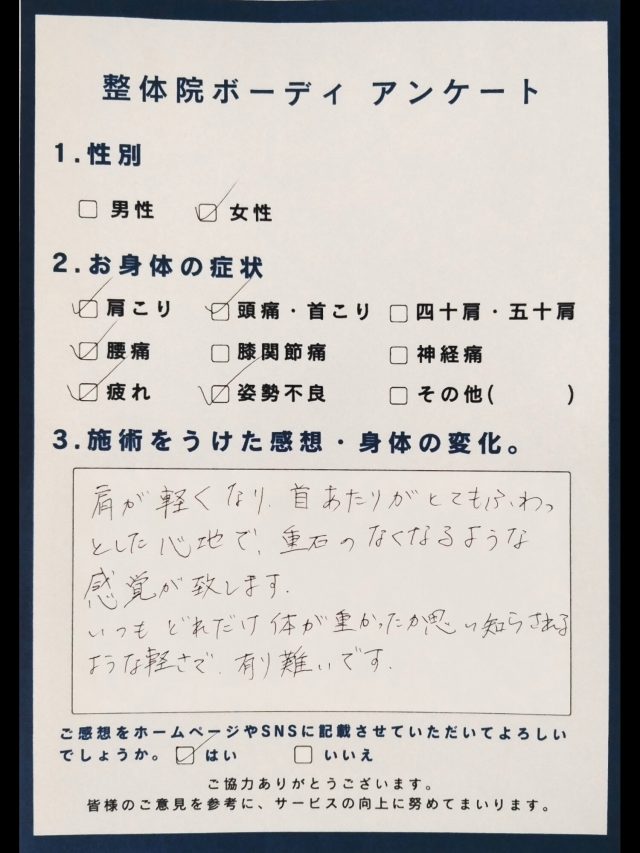 整体院ボーディ アンケート
1.性別
□ 男性 ☑ 女性
2.お身体の症状
☑ 肩こり ☑ 頭痛・首こり □ 四十肩・五十肩
☑ 腰痛 □ 膝関節痛 □ 神経痛
☑ 疲れ ☑ 姿勢不良 □ その他( )
3.施術をうけた感想・身体の変化。
肩が軽くなり、首あたりがとてもふわっ
とした心地で、重石のなくなるような
感覚が致します.
いつもどれだけ体が重かったか思い知らされる
ような軽さで、有り難いです.
ご感想をホームページやSNSに記載させていただいてよろしい
でしょうか。 ☑ はい □ いいえ
ご協力ありがとうございます。
皆様のご意見を参考に、サービスの向上に努めてまいります。